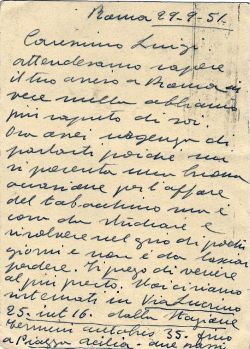 Roma 29-9-51.
Carissimo Luigi
attendevamo sapere
il tuo arrivo a Roma in
vece nulla abbiamo
più saputo di voi.
Ora avrei urgenza di
parlarti poiché mi
si presenta una buona
occasione per l'affare
del tabacchino ma è
cosa da studiare e
risolvere nel giro di pochi
giorni e non è da lasciar
perdere. Ti prego di venire
al più presto. Noi ci siamo
sistemati in Via Lucrino
25. int 16. dalla Stazione
Termini autobus 35. fino
a Piazza Acilia - due passi